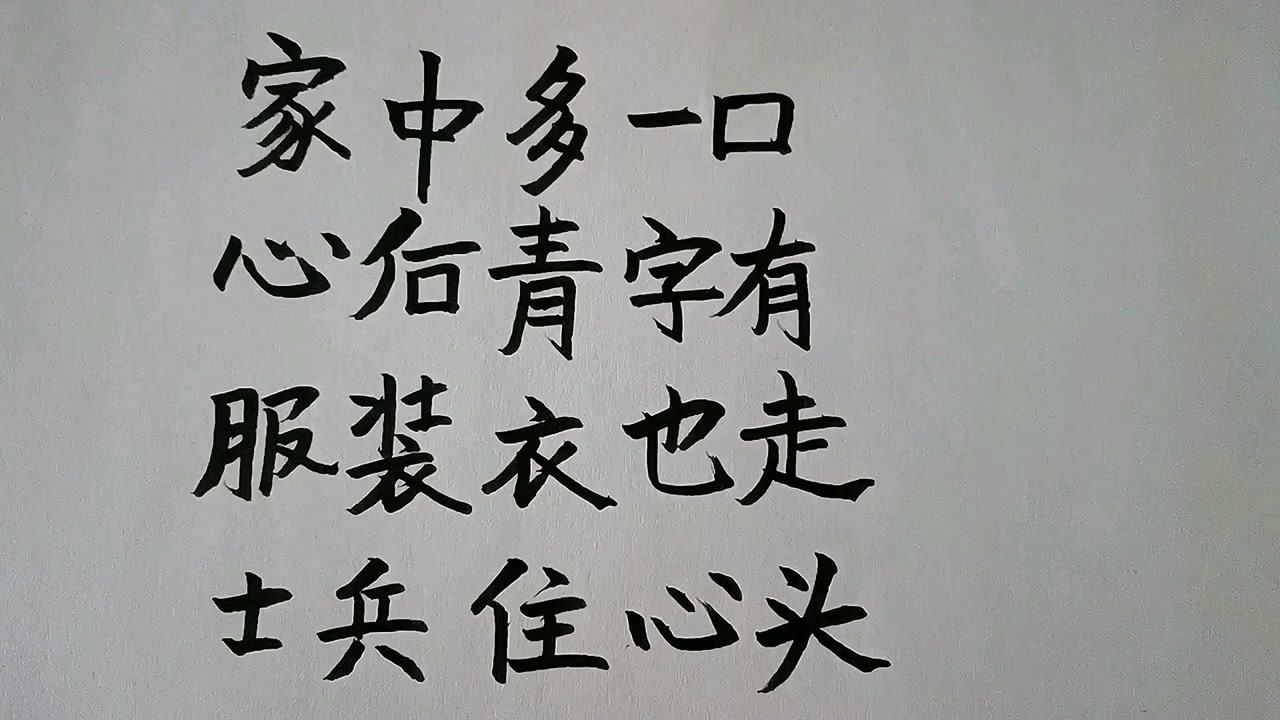 家中多一口
心后青字有
服装衣也走
士兵住心头